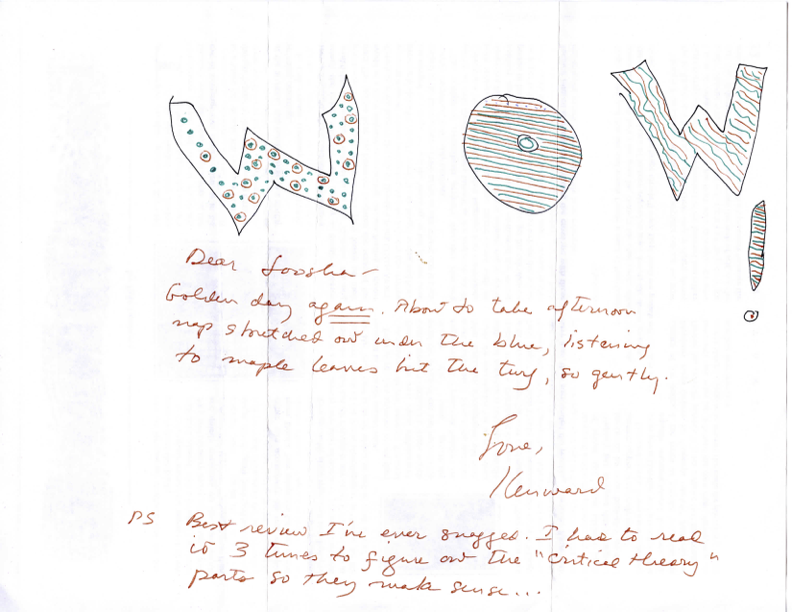 WOW!
Dear Soosha –
Golden day again. About to take afternoon
nap stretched out under the blue, listening
to maple leaves hit the turf, so gently.
Love,
Kenward
PS Best review I've ever snagged. I had to read
it 3 times to figure out the "critical theory"
parts so they make sense...